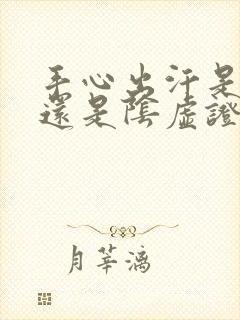 手心出汗是
還是陰虛證
月華漓